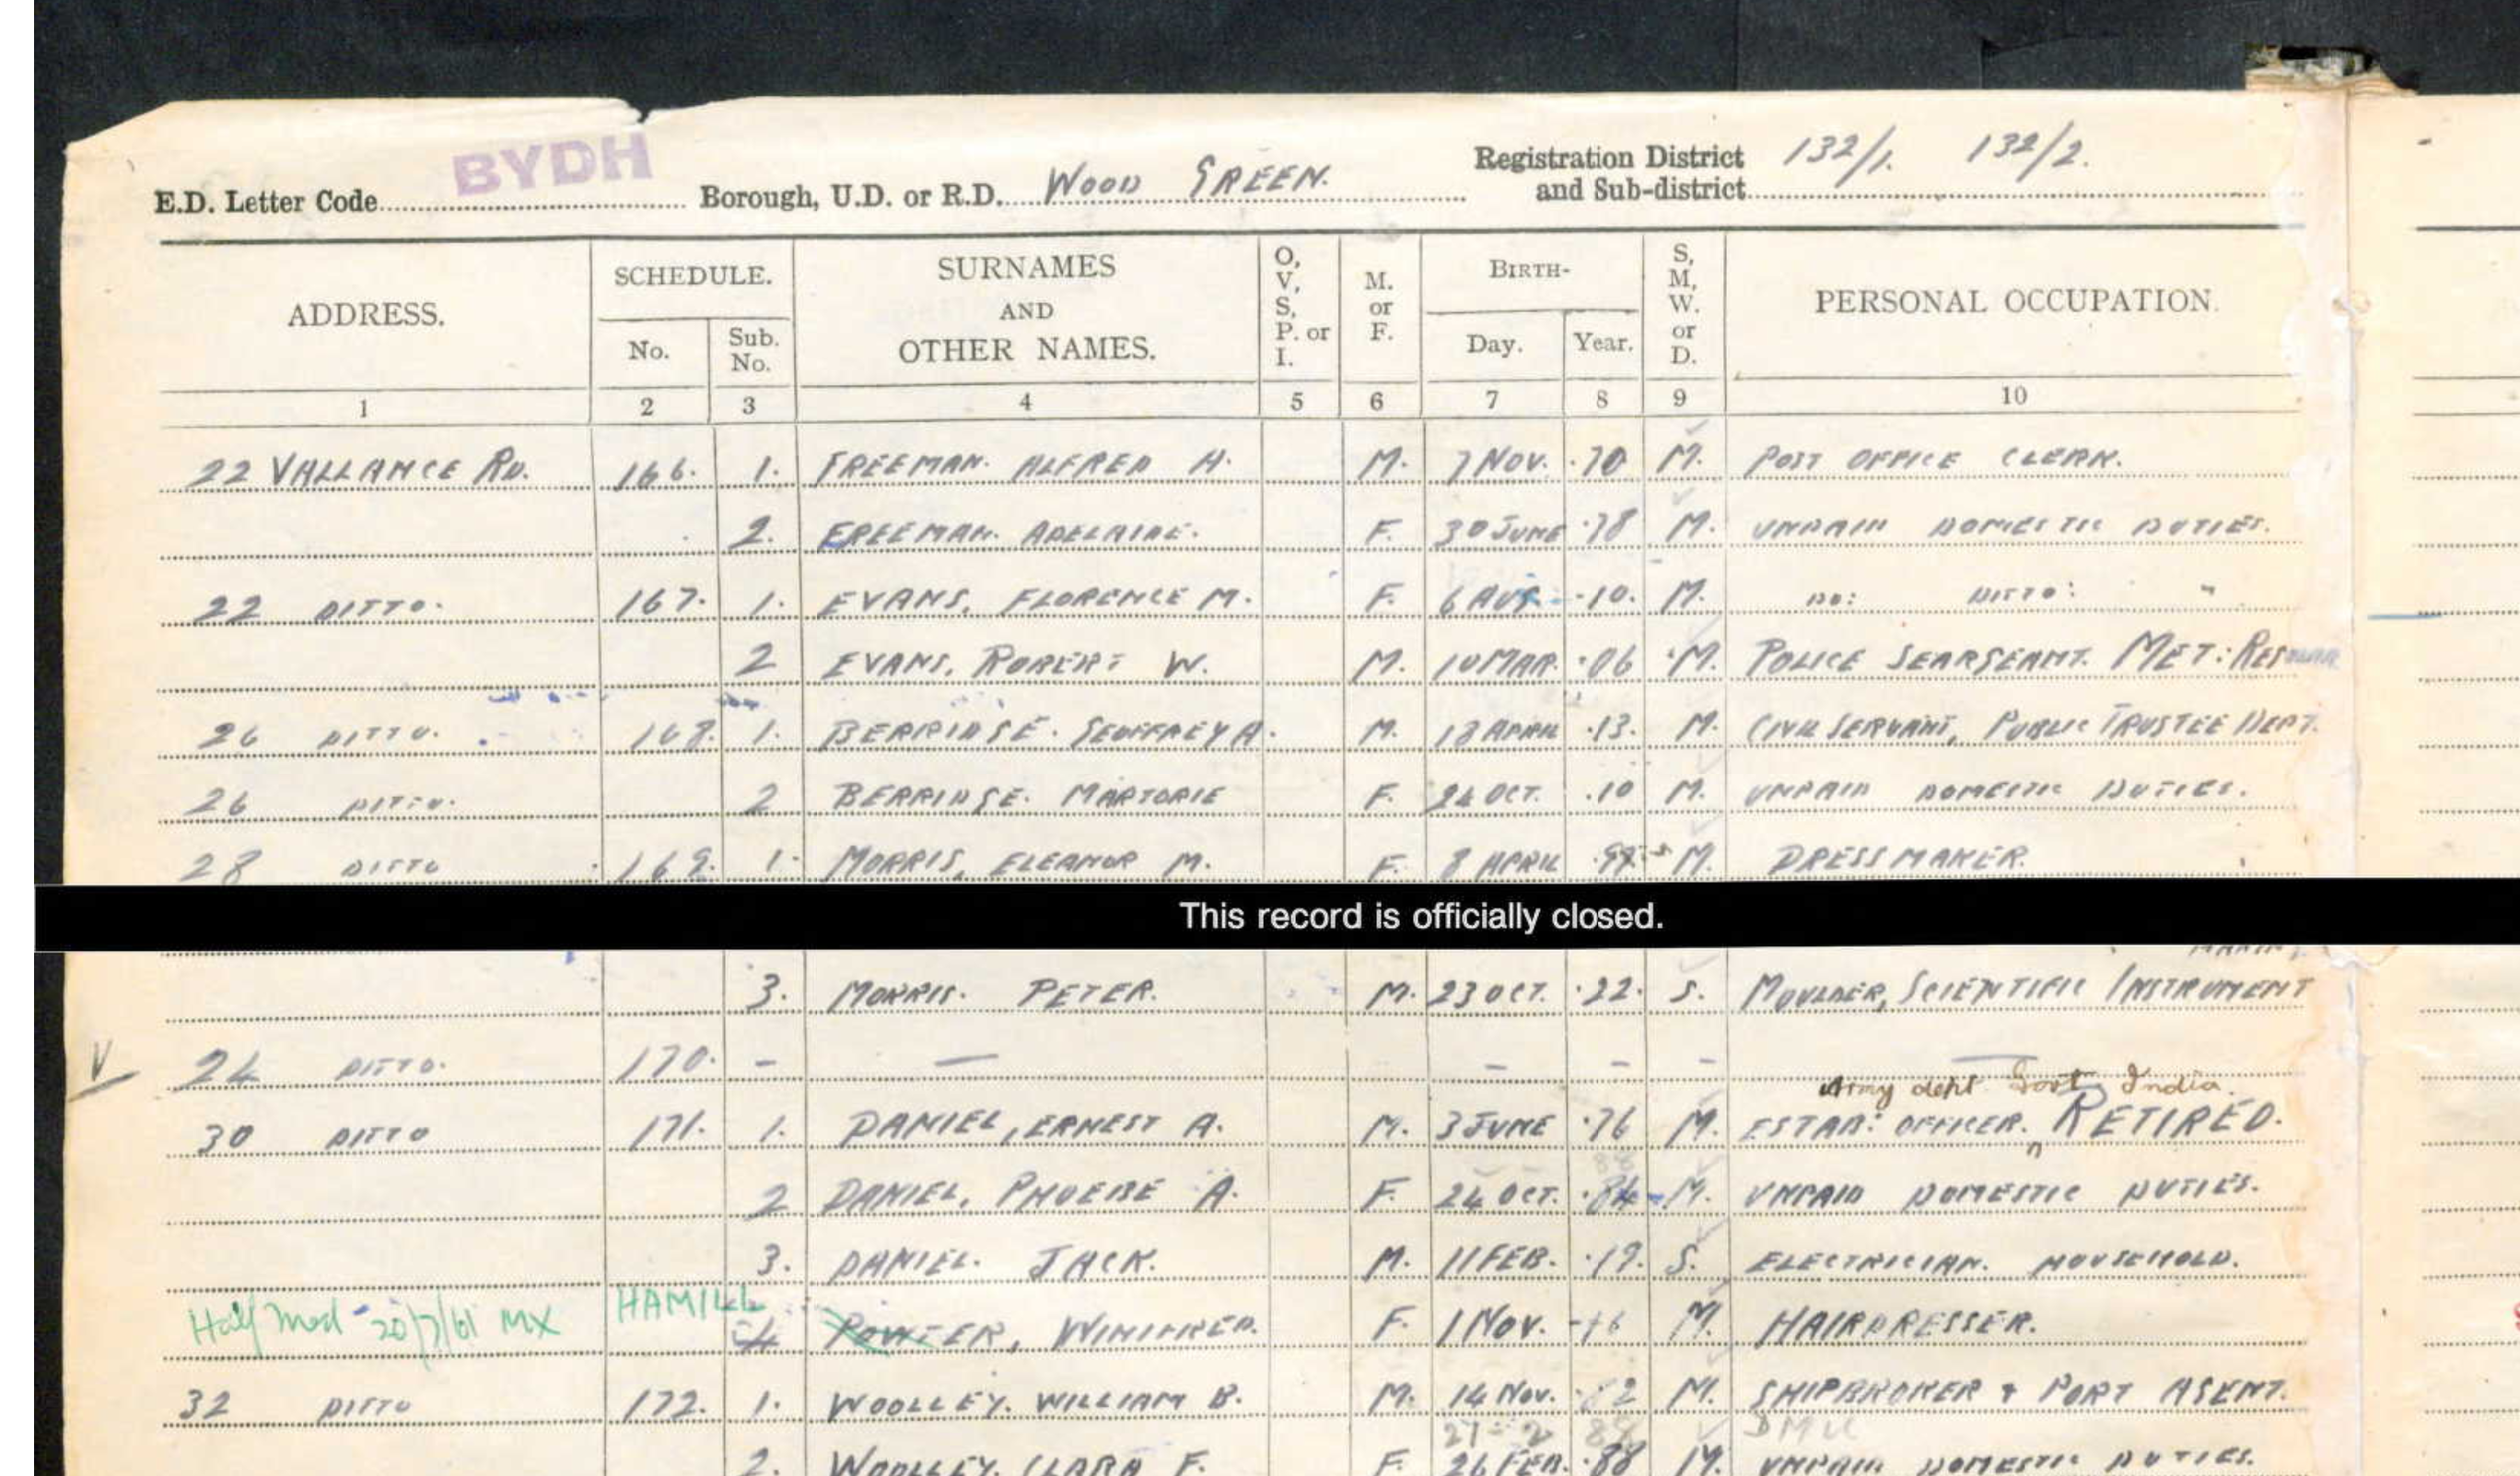 BYDH
E.D. Letter Code Borough, U.D. or R.D. WOOD GREEN. Registration District and Sub-district 132/1. 132/2.
ADDRESS. SCHEDULE. No. Sub. No. SURNAMES AND OTHER NAMES. O, V, S, P. or I. M. or F. BIRTH- Day. Year. S, M, W. or D. PERSONAL OCCUPATION.
1 2 3 4 5 6 7 8 9 10
22 VALLANCE RD. 166. 1. FREEMAN. ALFRED H. M. 7 NOV. ·70 M. POST OFFICE CLERK.
2. FREEMAN. ADELAIDE. F. 30 JUNE ·78 M. UNPAID DOMESTIC DUTIES.
22 DITTO. 167. 1. EVANS, FLORENCE M. F. 6 AUG. ·10. M. DO: DITTO: "
2 EVANS, ROBERT W. M. 10 MAR. ·06 M. POLICE SEARGEANT. MET:
26 DITTO. 168. 1. BERRIDGE. GEOFFREY A. M. 18 APRIL ·13. M. CIVIL SERVANT, PUBLIC TRUSTEE DEPT.
26 DITTO. 2 BERRIDGE. MARJORIE F. 26 OCT. ·10 M. UNPAID DOMESTIC DUTIES.
28 DITTO 169. 1. MORRIS, ELEANOR M. F. 8 APRIL M. DRESSMAKER.
This record is officially closed.
3. MORRIS. PETER. M. 23 OCT. ·22. S. MOULDER, SCIENTIFIC INSTRUMENT
V 24 DITTO. 170. - - - - -
Army dept Govt India.
30 DITTO 171. 1. DANIEL, ERNEST A. M. 3 JUNE ·76 M. ESTAB: OFFICER. RETIRED.
2 DANIEL, PHOEBE A. F. 24 OCT. M. UNPAID DOMESTIC DUTIES.
3. DANIEL. JACK. M. 11 FEB. ·19. S. ELECTRICIAN. HOUSEHOLD.
Half Med 20/7/61 MX HAMILL 4 WINIFRED. F. 1 NOV. ·16 M. HAIRDRESSER.
32 DITTO 172. 1. WOOLLEY. WILLIAM B. M. 14 NOV. ·82 M. SHIPBROKER & PORT AGENT.
27-2
2. WOOLLEY. CLARA F. F. 26 FEB. ·88 M. UNPAID DOMESTIC DUTIES.